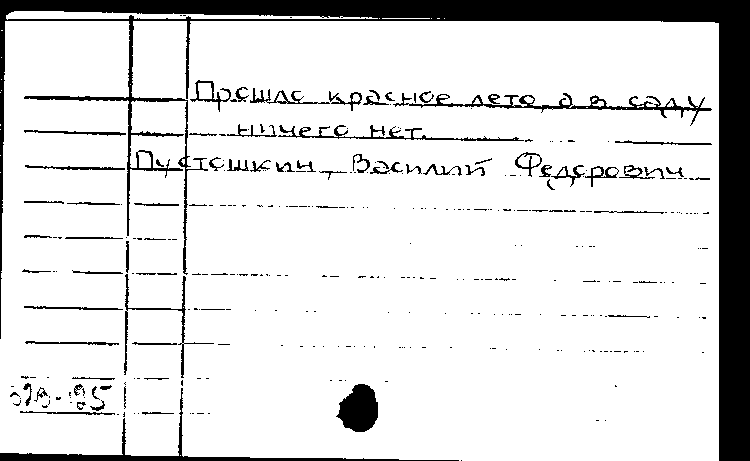 Прошло красное лето, а в саду
ничего нет.
Пустошкин, Василий Федорович